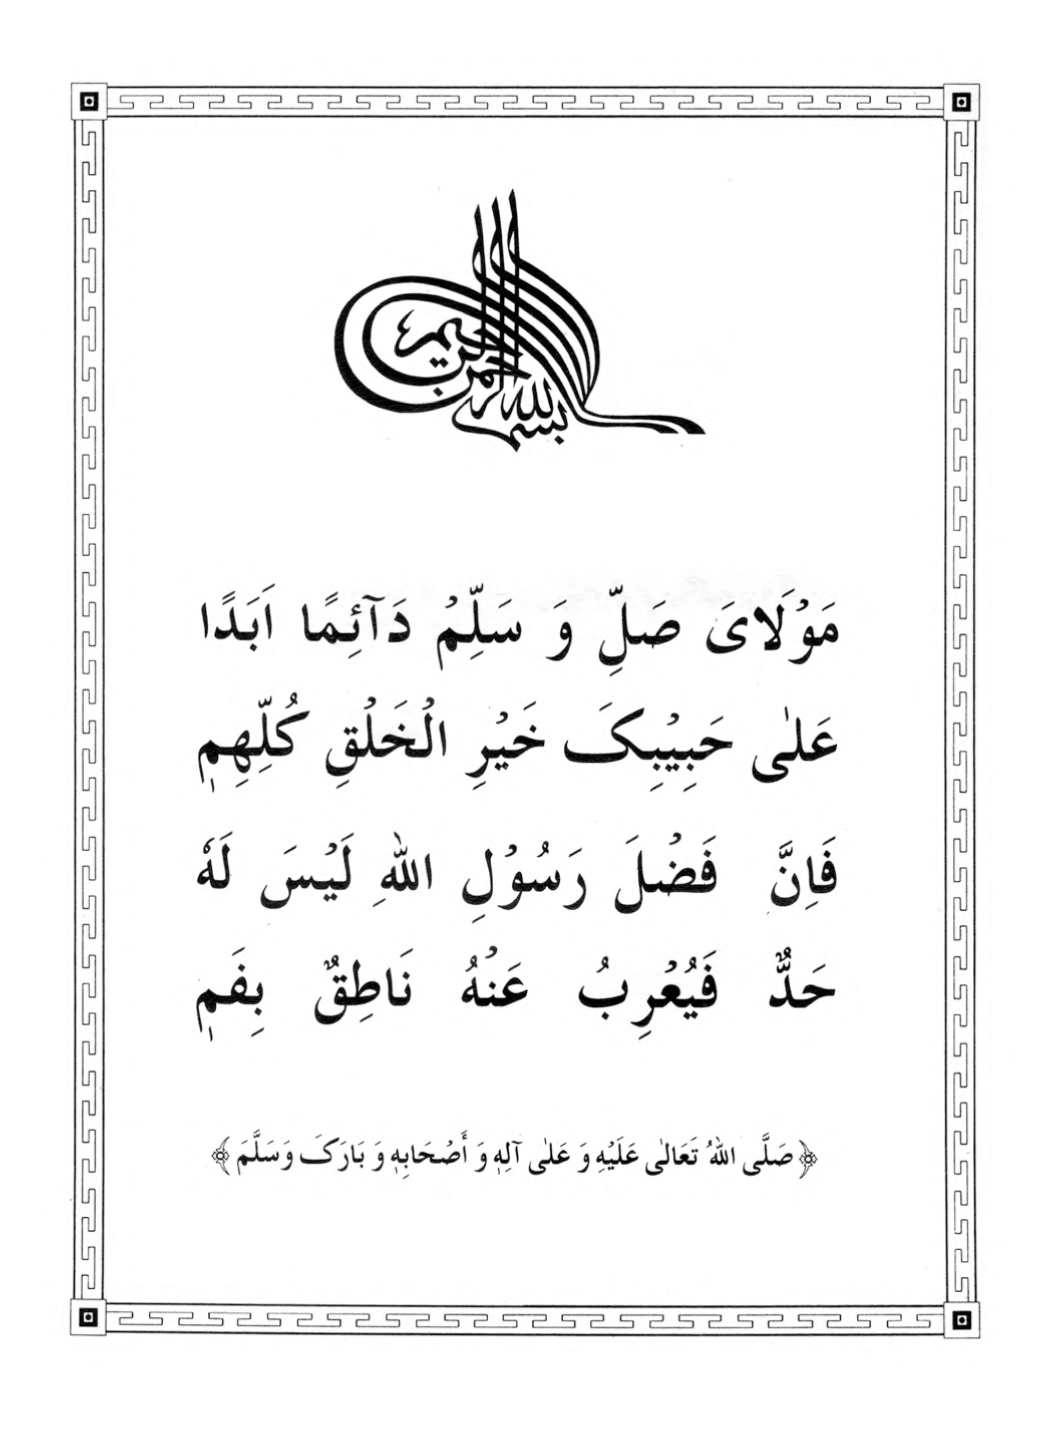 بسم الله الرحمن الرحيم
مَوْلَایَ صَلِّ وَ سَلِّمْ دَآئِمًا اَبَدًا
عَلٰی حَبِیْبِکَ خَیْرِ الْخَلْقِ کُلِّهِمٖ
فَاِنَّ فَضْلَ رَسُوْلِ اللّٰهِ لَیْسَ لَهٗ
حَدٌّ فَیُعْرِبُ عَنْهُ نَاطِقٌ بِفَمٖ
﴿صَلَّی اللّٰهُ تَعَالٰی عَلَیْهِ وَ عَلٰی آلِهٖ وَ أَصْحَابِهٖ وَ بَارَکَ وَسَلَّمَ﴾